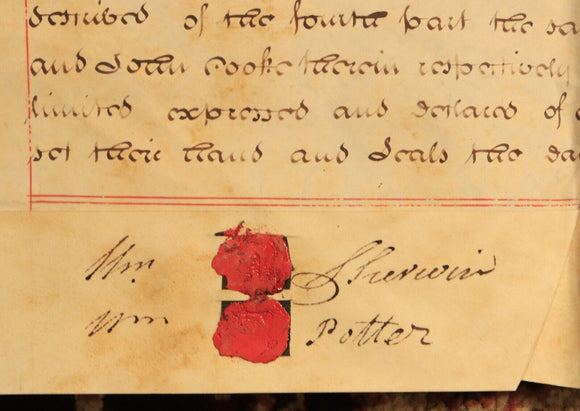 of the fourth part the sa
and John Cooke therein respectively
limited expressed and declared of
set their hand and Seals the da
Wm Sherwin
Wm Potter